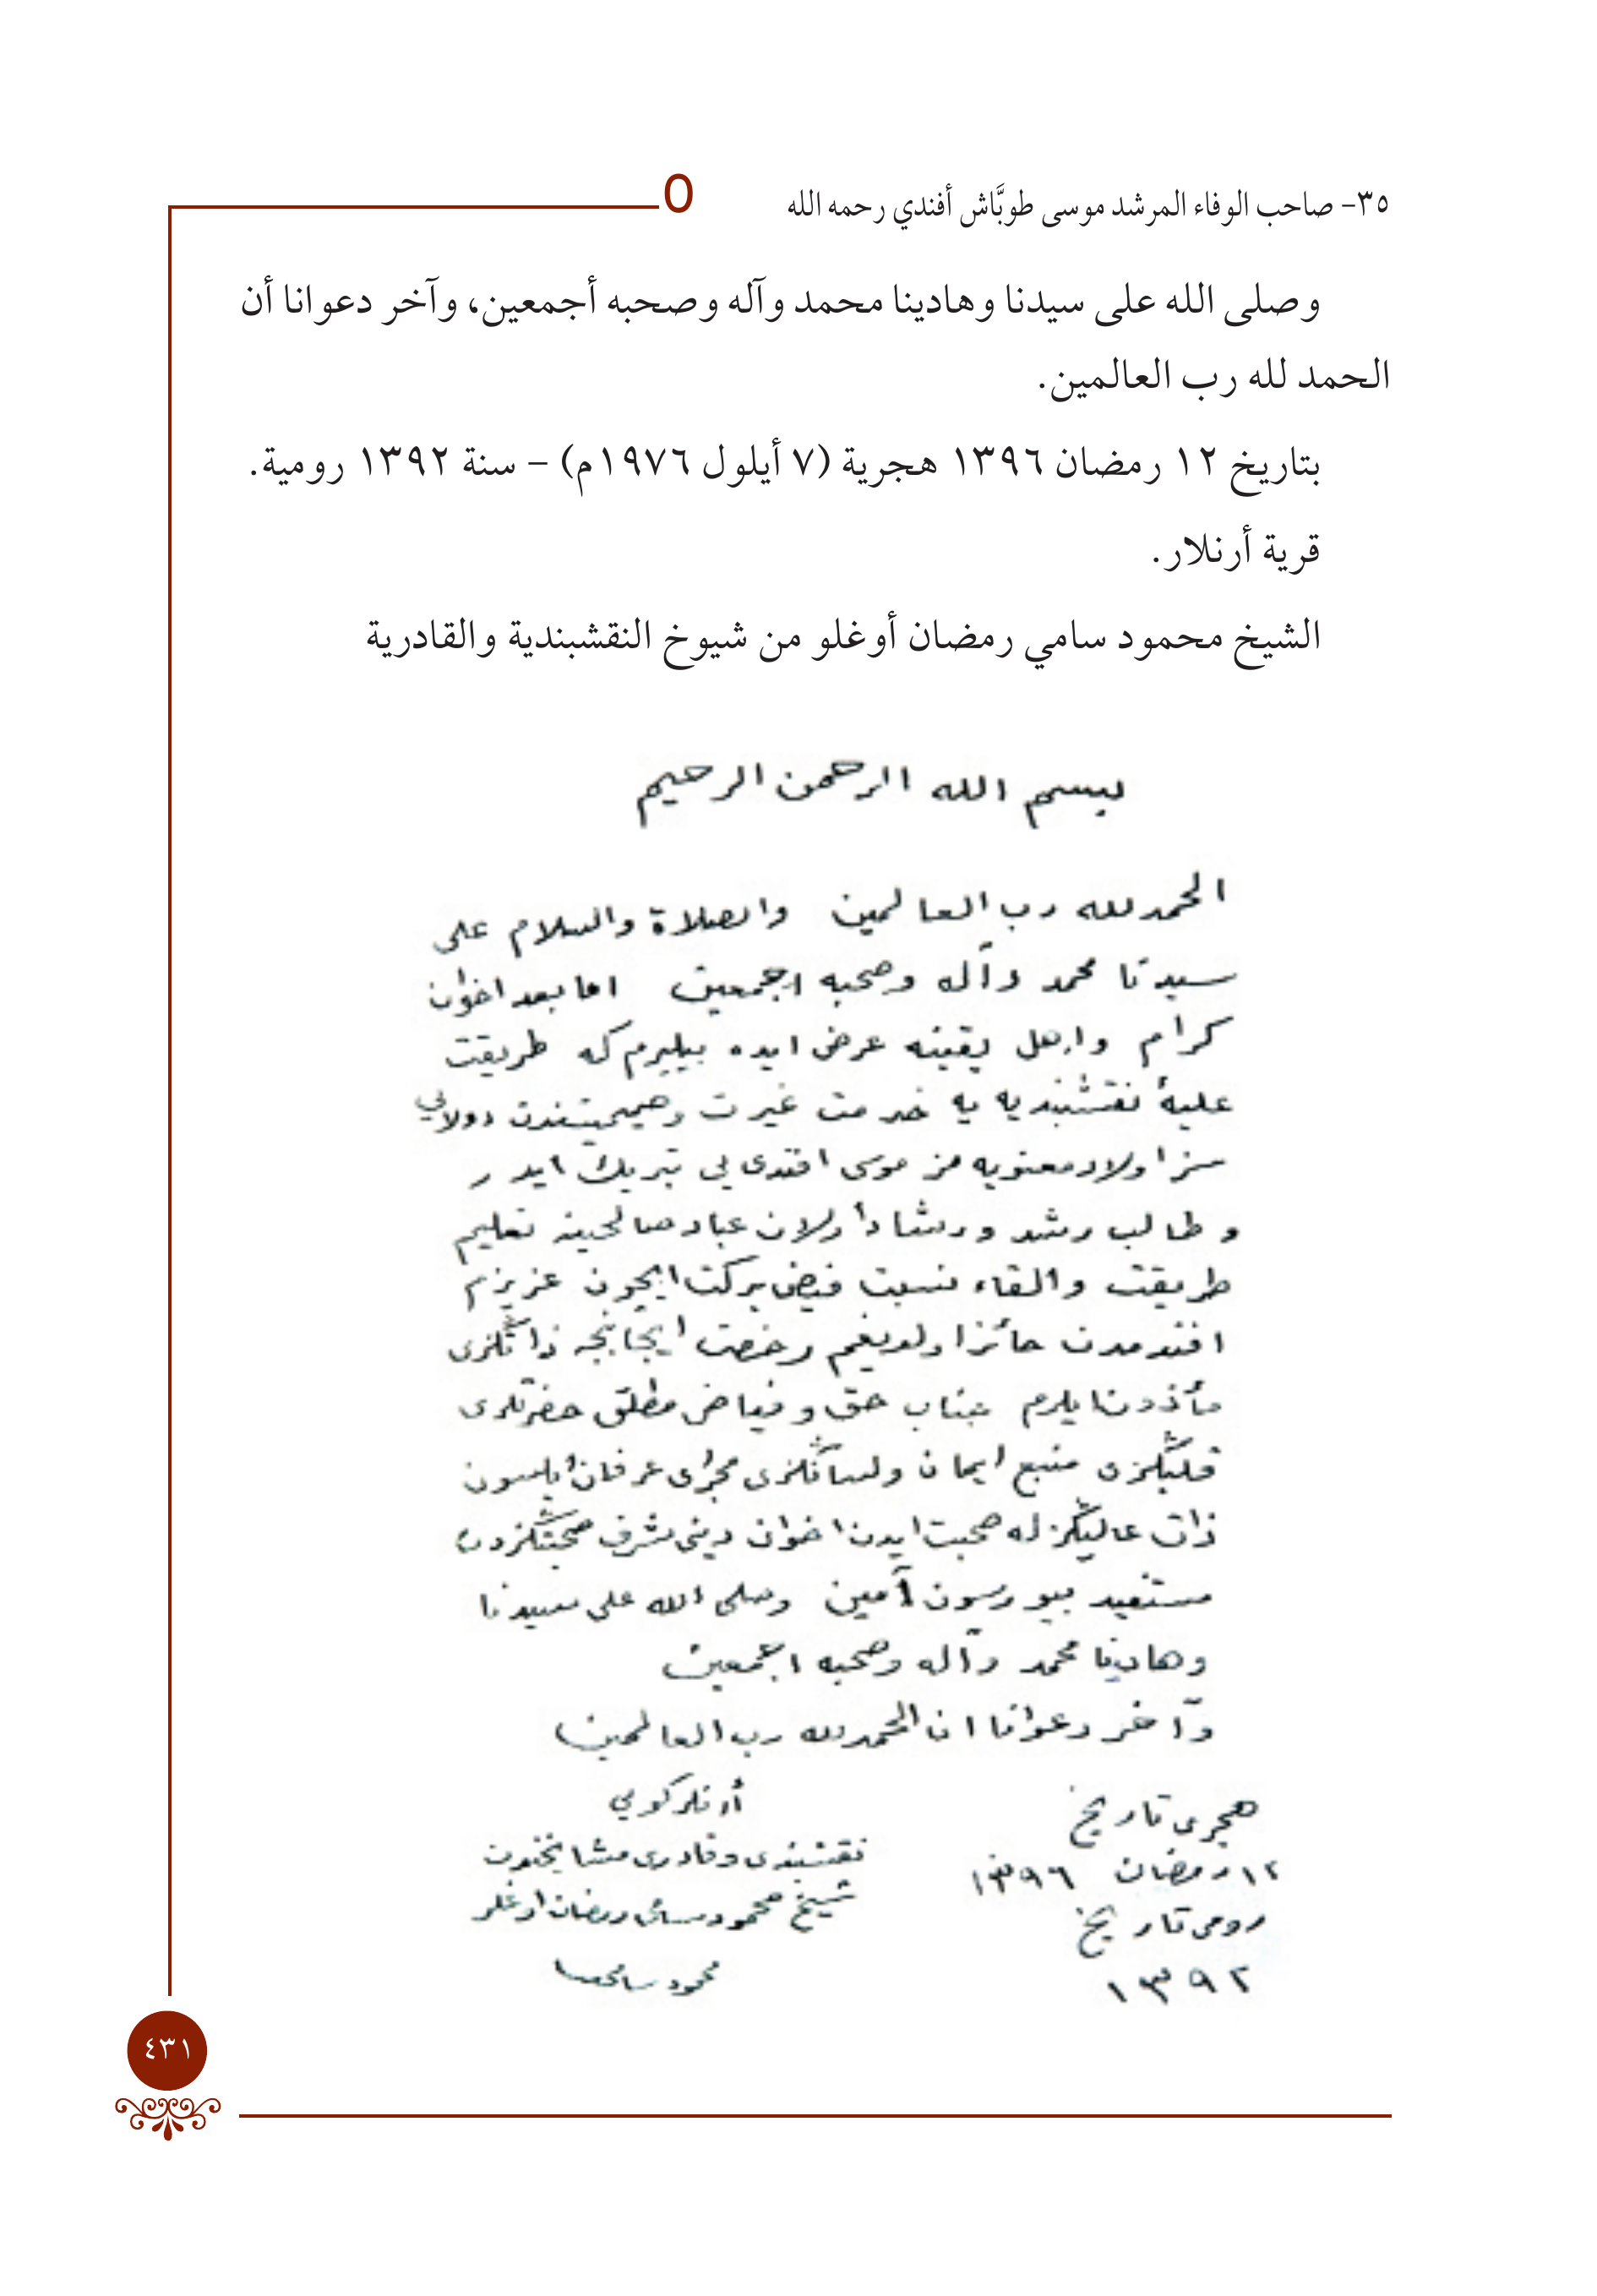 ٣٥- صاحب الوفاء المرشد موسى طوبَّاش أفندي رحمه الله
وصلى الله على سيدنا وهادينا محمد وآله وصحبه أجمعين، وآخر دعوانا أن
الحمد لله رب العالمين.
بتاريخ ١٢ رمضان ١٣٩٦ هجرية (٧ أيلول ١٩٧٦م) – سنة ١٣٩٢ رومية.
قرية أرنلار.
الشيخ محمود سامي رمضان أوغلو من شيوخ النقشبندية والقادرية
بسم الله الرحمن الرحيم
الحمد لله رب العالمين والصلاة والسلام على
سيدنا محمد وآله وصحبه اجمعين اما بعد اخوان
كرام واهل يقينه عرض ايده بيليرم كه طريقت
عليۀ نقشبنديه يه خدمت غيرت وصميميتندن دولايي
سزا ولاد معنويه مز موسى افندى يي تبريك ايدر
و طالب رشد ورشاد اولان عباد صالحينه تعليم
طريقت والقاء نسبت فيض بركت ايچون عزيزم
افندمدن حائز اولديغم رخصت ايجابنجه ذاتكزى
مأذون ايلرم جناب حق و فياض مطلق حضرتلرى
قلبكزى منبع ايمان ولسانكزى مجراى عرفان ايلسون
ذات عاليكز له صحبت ايدن اخوان دينى مشرف صحبتكزدن
مستفيد بيورسون آمين وصلى الله على سيدنا
وهادينا محمد وآله وصحبه اجمعين
وآخر دعوانا ان الحمد لله رب العالمين
أرنلر كويي
هجرى تاريخ
نقشبندى وقادرى مشايخندن
١٢ رمضان ١٣٩٦
شيخ محمود سامى رمضان اوغلو
رومى تاريخ
محمود سامى
١٣٩٢
٤٣١